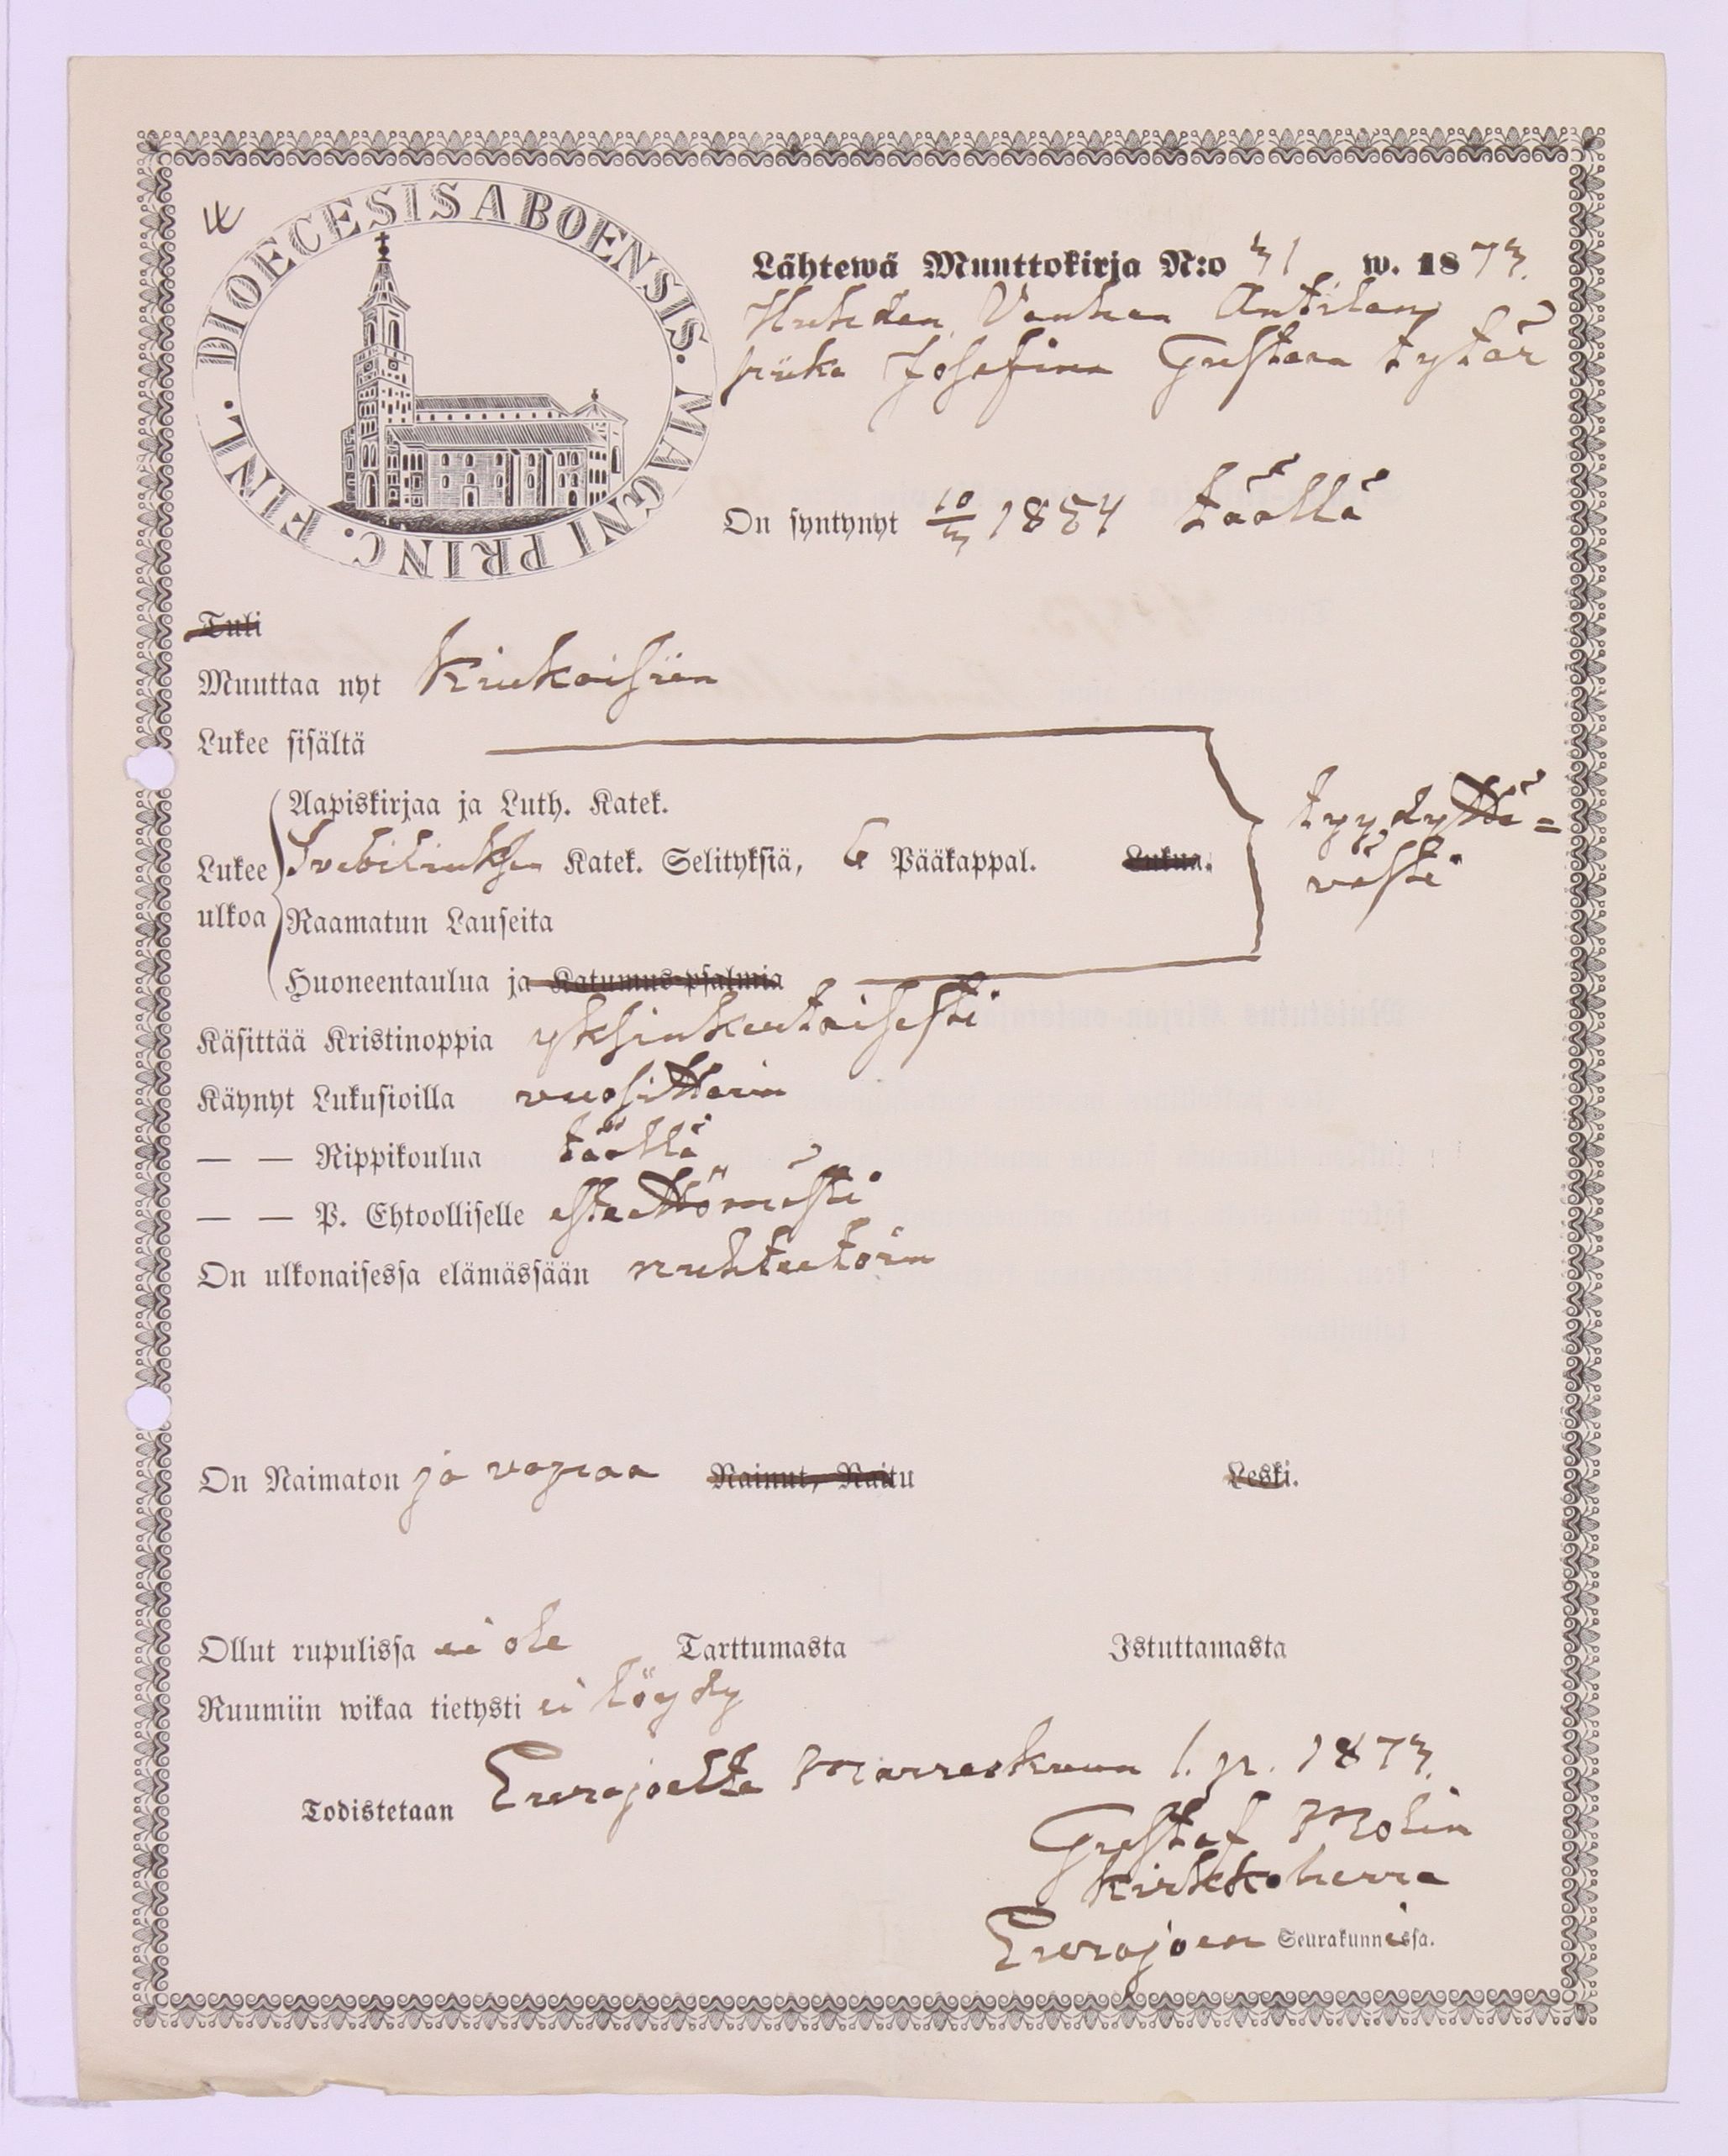 DIOECESIS ABOENSIS. MAGNI PRINC. FINL.
Lähtewä Muuttokirja N:o 31 w. 1873.
Huhdan Vanhan Antilan
piika Josefina Gustava tytär
On syntynyt 10/3 1854 täällä
Tuli
Muuttaa nyt Kiukaisiin
Lukee sisältä
Aapiskirjaa ja Luth. Katek.
Lukee ulkoa Svebiliuksen Katek. Selityksiä, 6 Pääkappal. Lukua.
tyydyttä=
västi
Raamatun Lauseita
Huoneentaulua ja Katumus-psalmia
Käsittää Kristinoppia yksinkertaisesti
Käynyt Lukusioilla vuosittain
— — Rippikoulua täällä
— — P. Ehtoolliselle esteettömästi
On ulkonaisessa elämässään nuhteetoin
On Naimaton ja vapaa Nainut, Naitu Leski.
Ollut rupulissa ei ole Tarttumasta Istuttamasta
Ruumiin wikaa tietysti ei löydy
Todistetaan Eurajoelta Marraskuun 1. p. 1873.
Gustaf Molin
Kirkkoherra
Eurajoen Seurakunnissa.